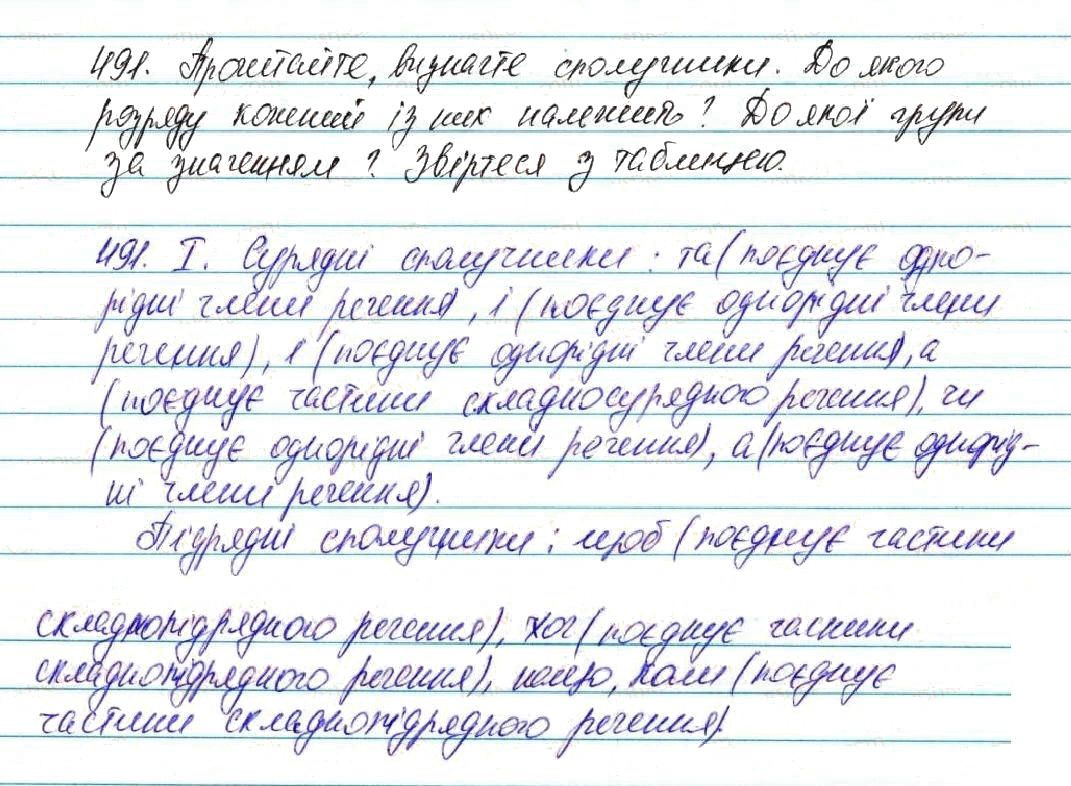 491. Прочитайте, визначте сполучники. До якого
розряду кожний із них належить? До якої групи
за значенням? Звіртеся з таблицею.
491. I. Сурядні сполучники: та (поєднує одно-
рідні члени речення, і (поєднує однорідні члени
речення), і (поєднує однорідні члени речення), а
(поєднує частини складносурядного речення), чи
(поєднує однорідні члени речення), а (поєднує однорід-
ні члени речення).
Підрядні сполучники: щоб (поєднує частини
складнопідрядного речення), хоч (поєднує частини
складнопідрядного речення), коли (поєднує
частини складнопідрядного речення).